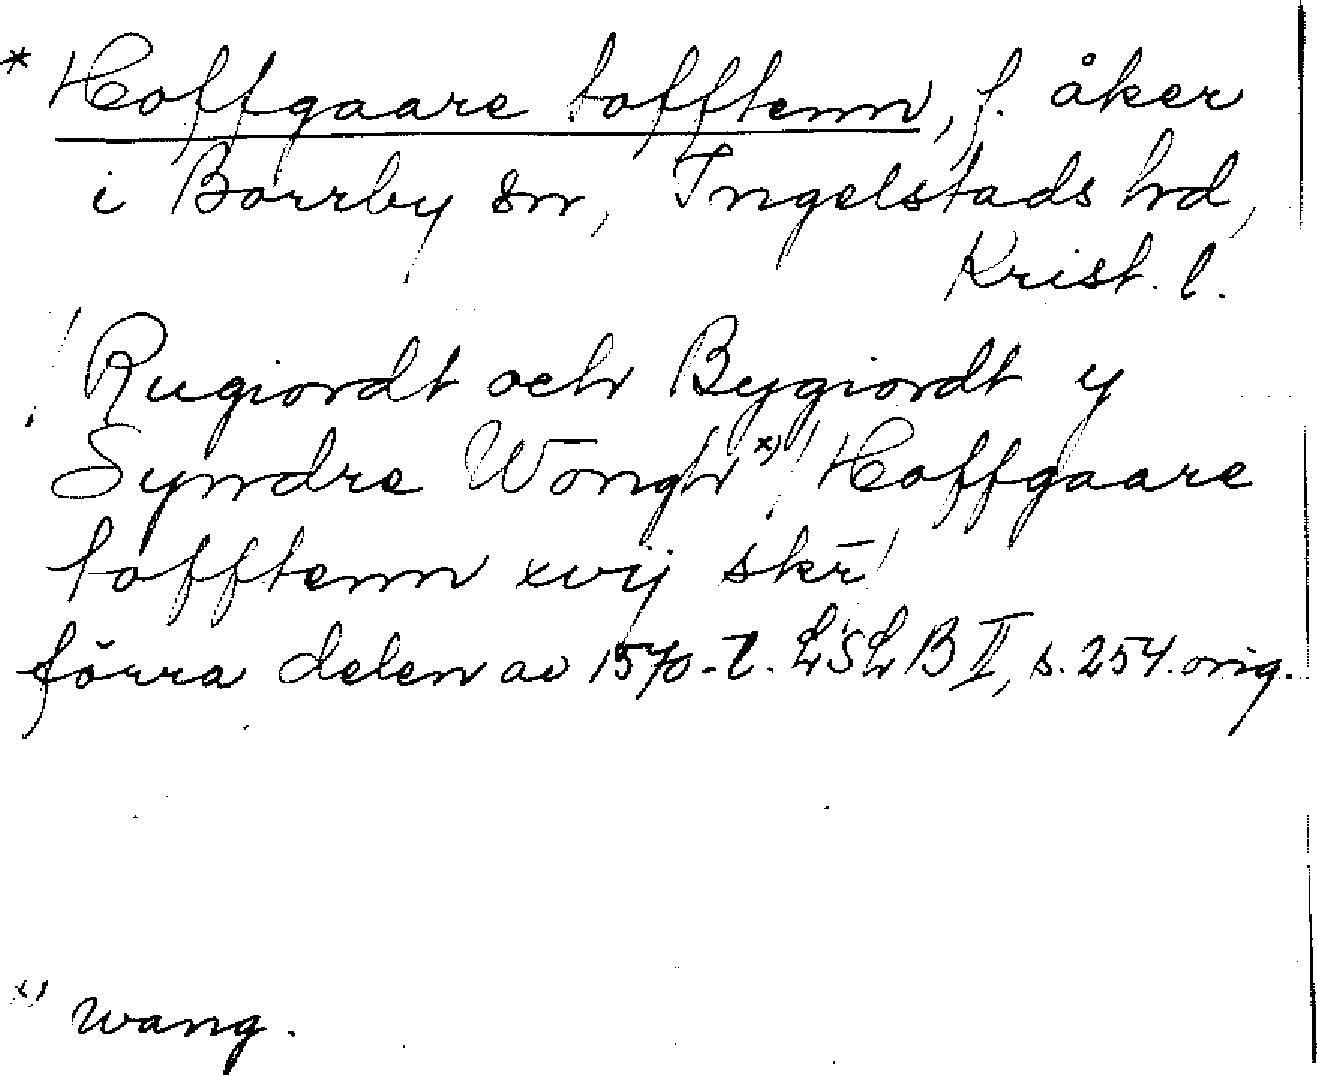 * Hoffgaare tofftenn, f. åker
i Borrby sn, Ingelstads hd,
Krist. l.
! Rugiordt och Bygiordt y
Syndre Wongh x) ! Hoffgaare
tofftenn xvij skr̄ !
förra delen av 1570-t. LSLB II, s. 254. orig.
x) wang.